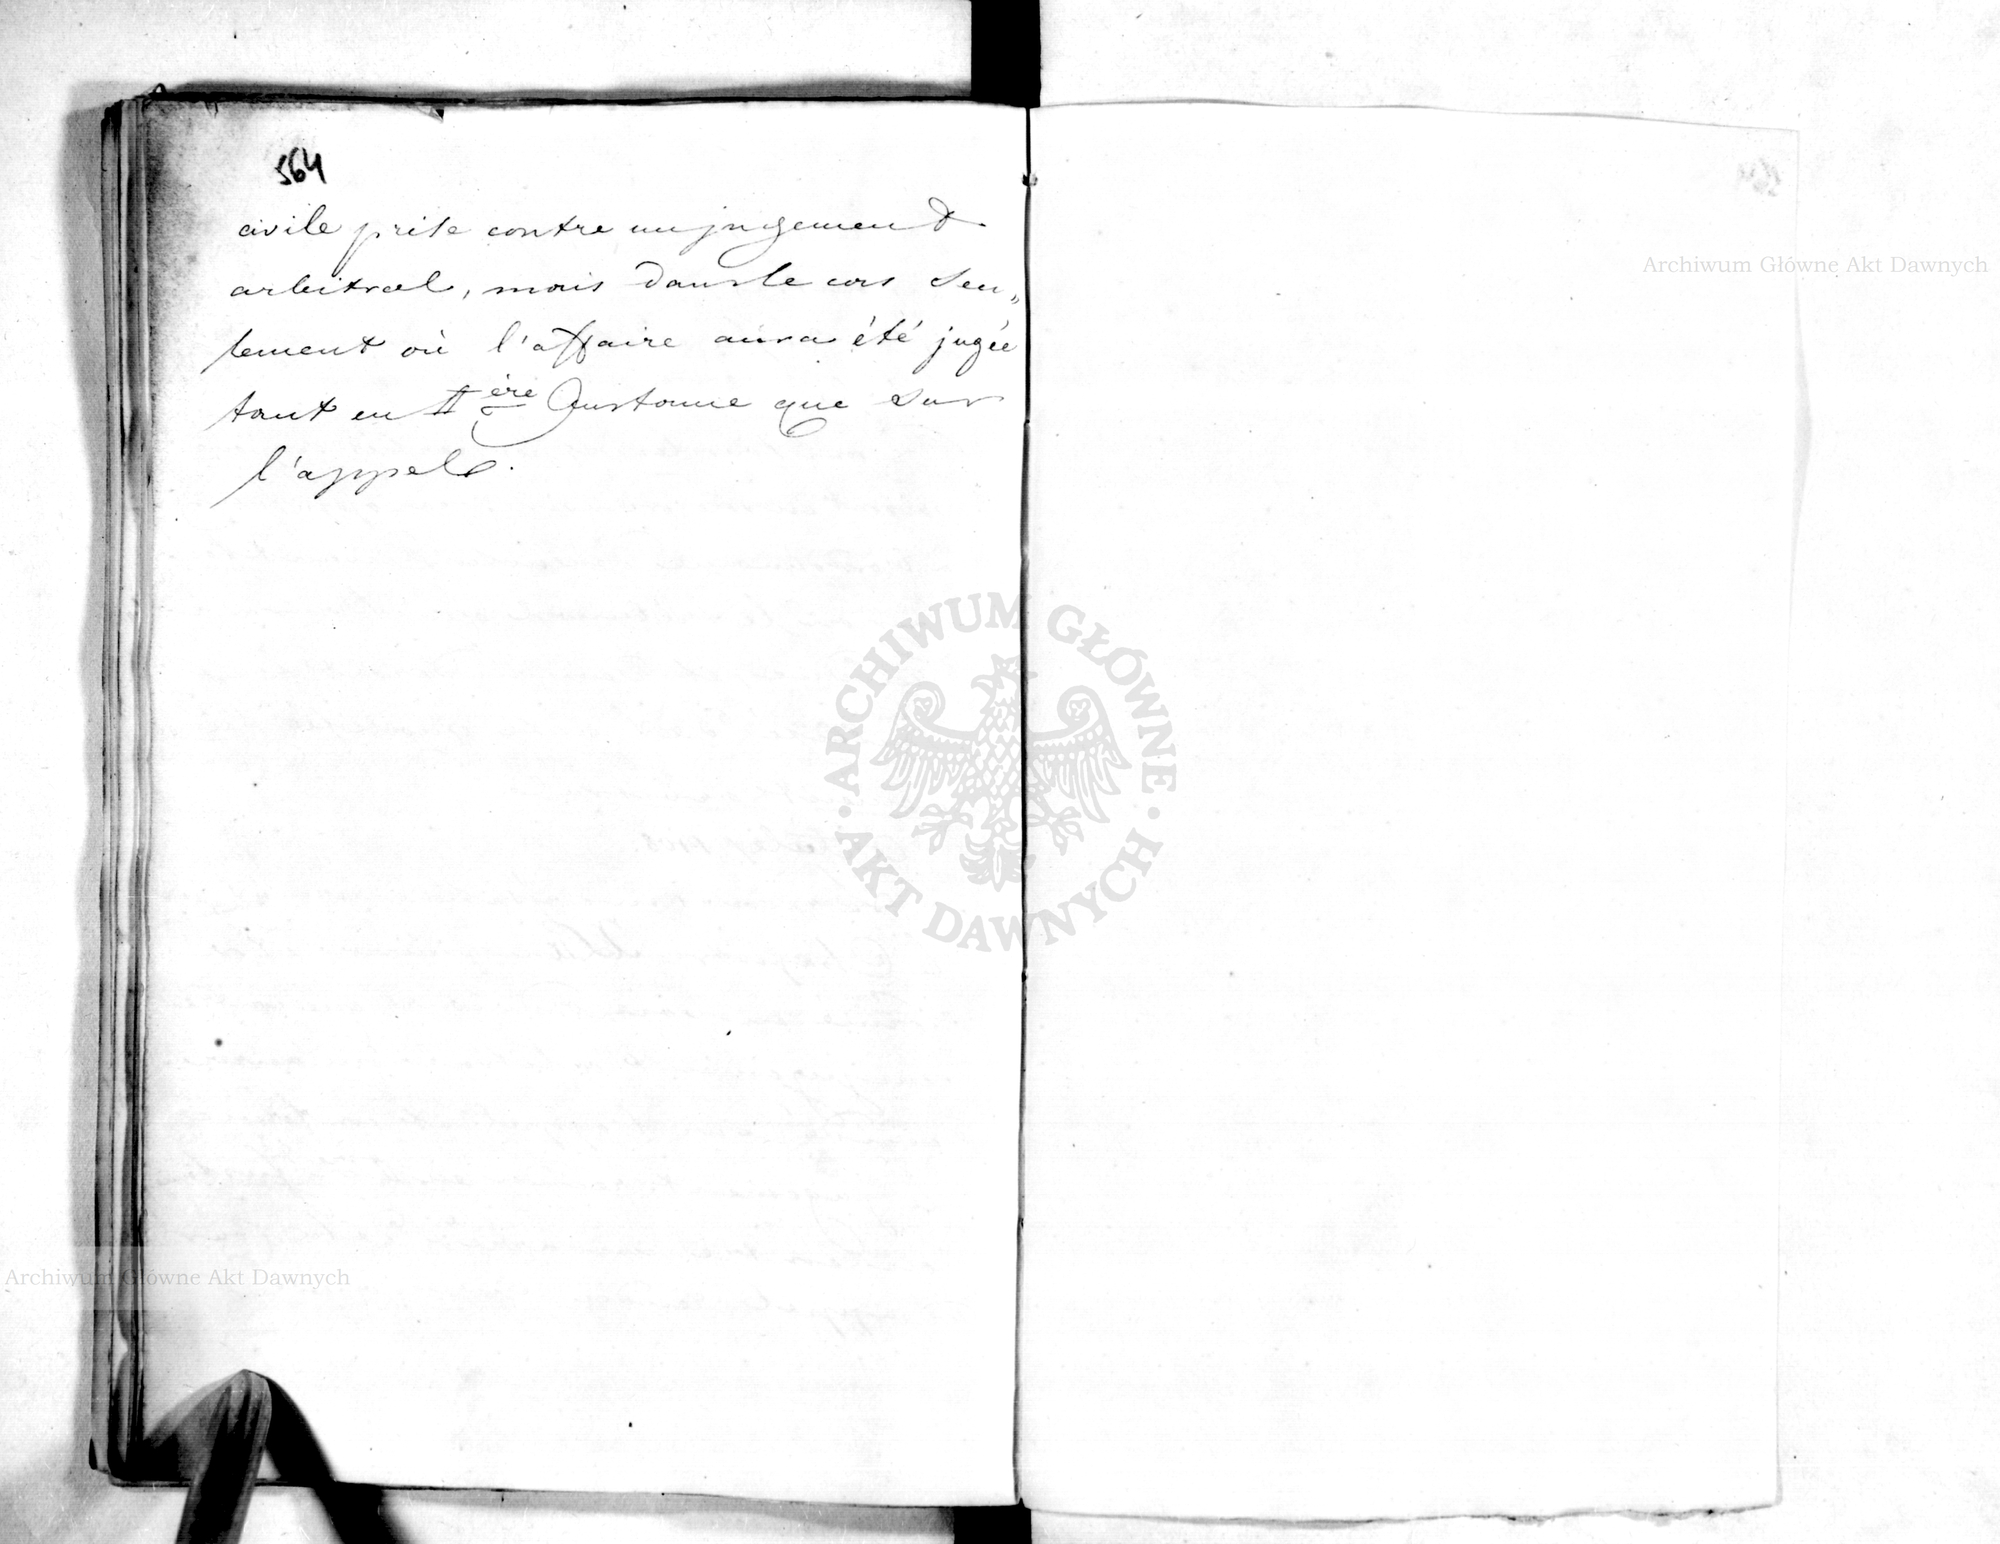 564
civile prise contre un jugement
arbitral, mais dans le cas seu„
lement où l'affaire aura été jugée
tant en Ière Instance que sur
l'appel.
Archiwum Główne Akt Dawnych
ARCHIWUM GŁÓWNE AKT DAWNYCH
Archiwum Główne Akt Dawnych